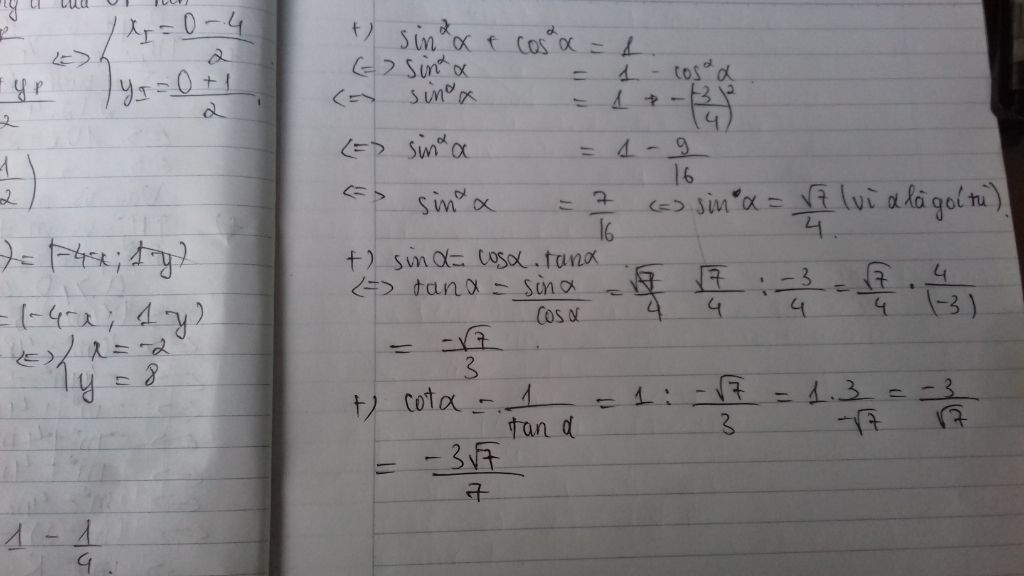 x_I = (0 - 4)/2
<=> {
y_I = (0 + 1)/2
= (-4-x; 1-y)
= (-4-x; 1-y)
<=> { x = -2
y = 8
1 - 1/4.
+) sin²α + cos²α = 1.
<=> sin²α = 1 - cos²α
<=> sin²α = 1 - (-3/4)²
<=> sin²α = 1 - 9/16
<=> sin²α = 7/16 <=> sin α = √7/4 (vì α là góc tù).
+) sinα = cosα.tanα
<=> tanα = sinα/cosα = √7/4 : -3/4 = √7/4 . 4/(-3)
= -√7/3.
+) cotα = 1/tan α = 1 : -√7/3 = 1.3/-√7 = -3/√7
= -3√7/7